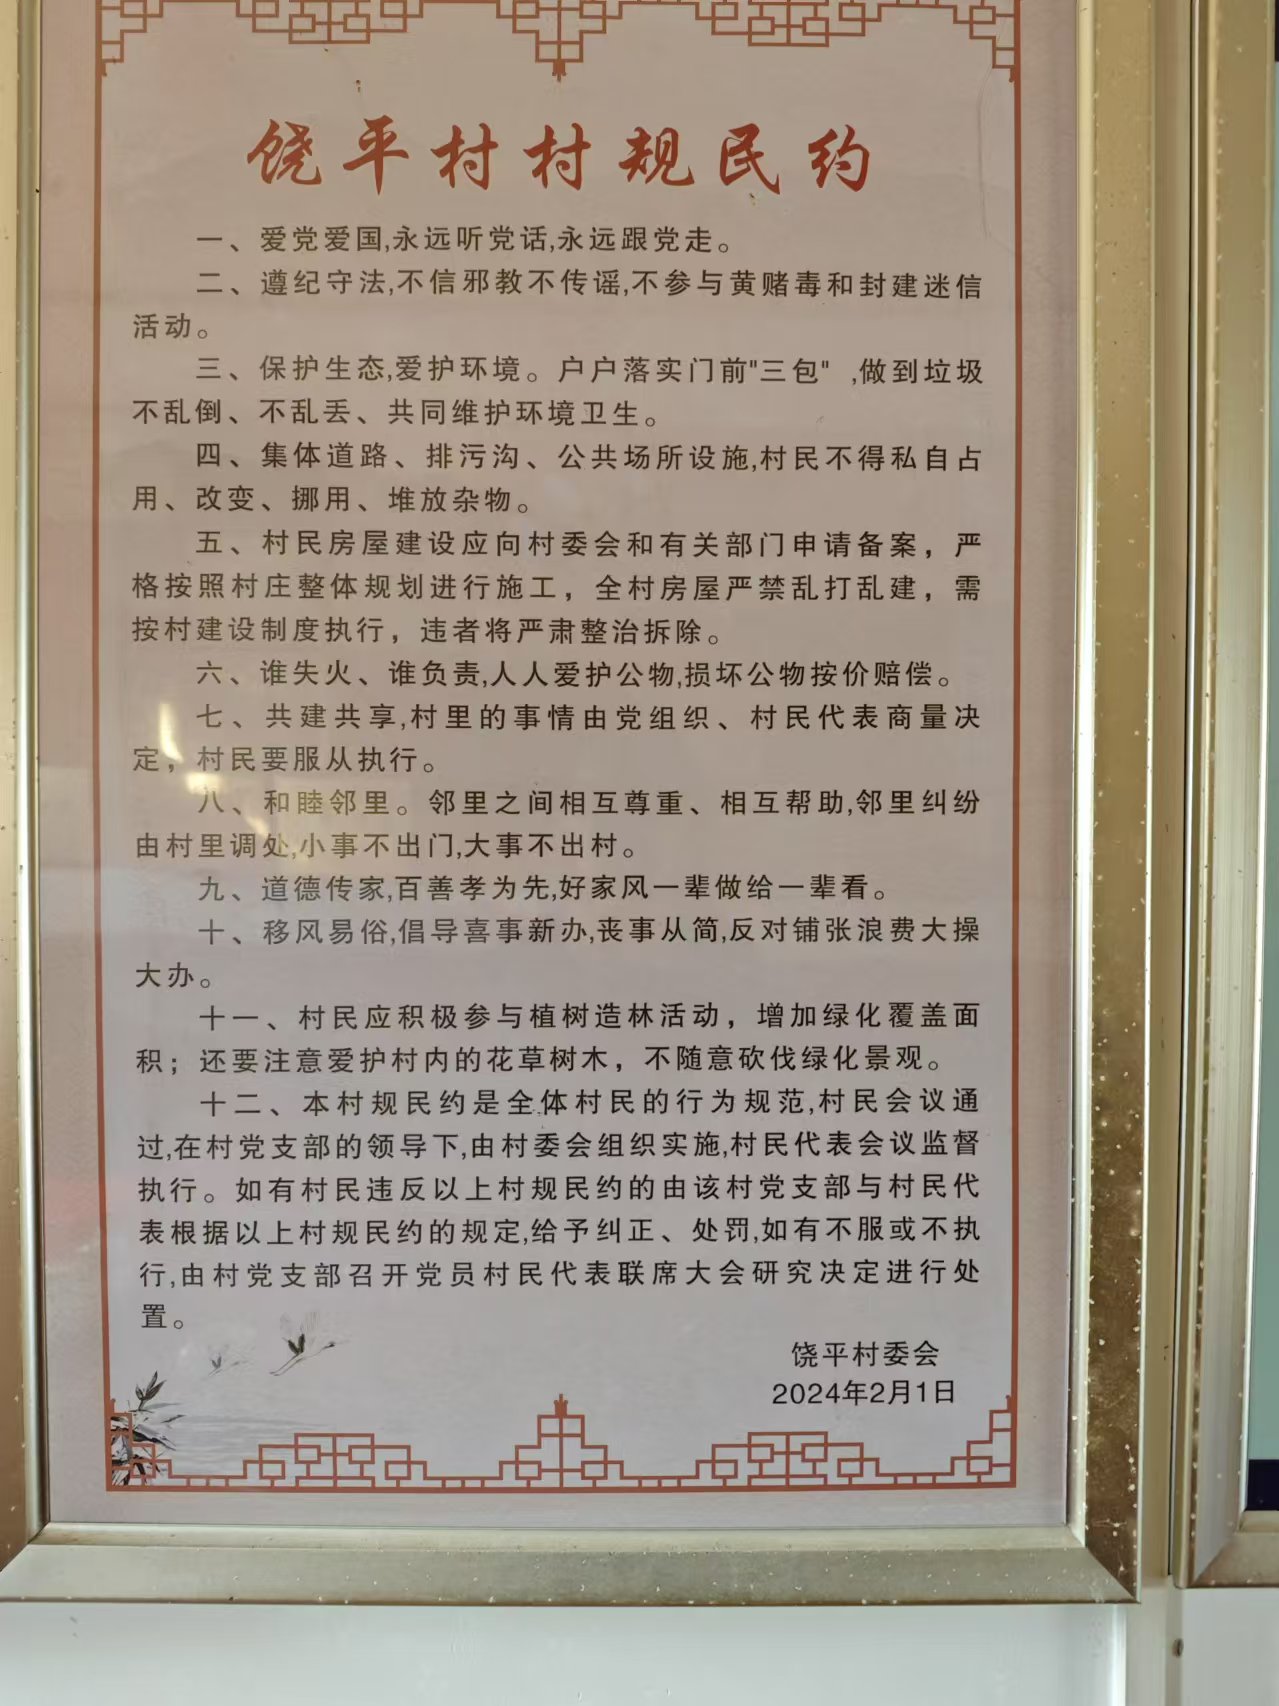 饶平村村规民约
一、爱党爱国,永远听党话,永远跟党走。
二、遵纪守法,不信邪教不传谣,不参与黄赌毒和封建迷信
活动。
三、保护生态,爱护环境。户户落实门前"三包" ,做到垃圾
不乱倒、不乱丢、共同维护环境卫生。
四、集体道路、排污沟、公共场所设施,村民不得私自占
用、改变、挪用、堆放杂物。
五、村民房屋建设应向村委会和有关部门申请备案，严
格按照村庄整体规划进行施工，全村房屋严禁乱打乱建，需
按村建设制度执行，违者将严肃整治拆除。
六、谁失火、谁负责,人人爱护公物,损坏公物按价赔偿。
七、共建共享,村里的事情由党组织、村民代表商量决
定，村民要服从执行。
八、和睦邻里。邻里之间相互尊重、相互帮助,邻里纠纷
由村里调处,小事不出门,大事不出村。
九、道德传家,百善孝为先,好家风一辈做给一辈看。
十、移风易俗,倡导喜事新办,丧事从简,反对铺张浪费大操
大办。
十一、村民应积极参与植树造林活动，增加绿化覆盖面
积；还要注意爱护村内的花草树木，不随意砍伐绿化景观。
十二、本村规民约是全体村民的行为规范,村民会议通
过,在村党支部的领导下,由村委会组织实施,村民代表会议监督
执行。如有村民违反以上村规民约的由该村党支部与村民代
表根据以上村规民约的规定,给予纠正、处罚,如有不服或不执
行,由村党支部召开党员村民代表联席大会研究决定进行处
置。
饶平村委会
2024年2月1日